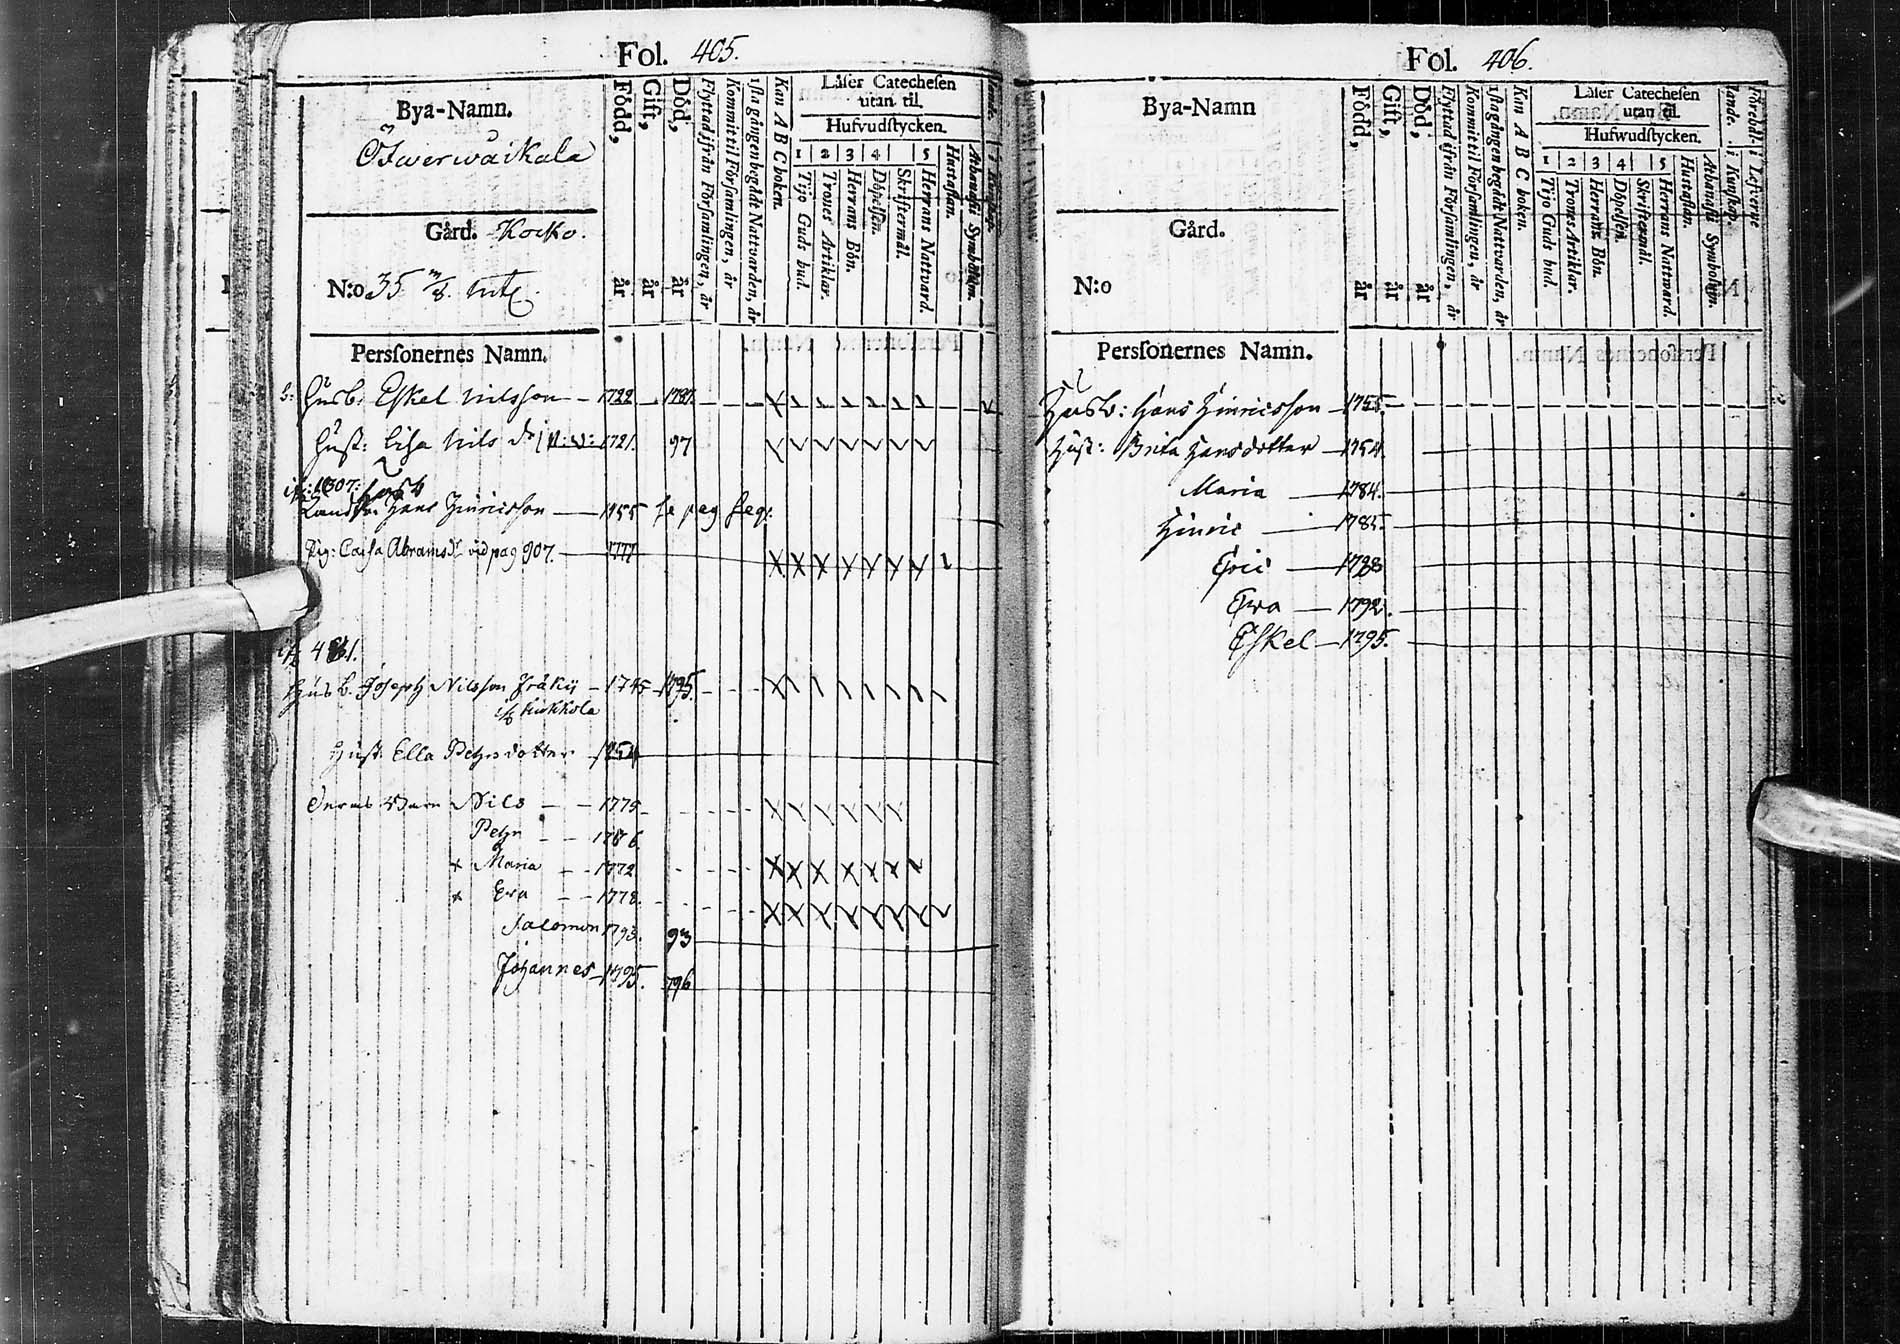 Fol. 405.
Bya-Namn.
Öfwerwäikala
Gård. Kocko.
N:o 35
Född, år
Gift, år
Död, år
Flyttad ifrån Församlingen, år
Kommit til Församlingen, år
1sta gången begådt Nattvarden, år
Kan A B C boken.
Läser Catechesen
utan til.
Hufvudstycken.
1 2 3 4 5
Tijo Guds bud.
Trones Artiklar.
Herrans Bön.
Döpelsen.
Skriftermål.
Herrans Nattvard.
Hustaflan.
Athanasii Symbolum.
Perssonernes Namn.
Husb: Eskel Nilsson — 1722 — 1787.
Hust: Lisa Nils dr 1721. 97
Hans Hinricsson — 1755 se pag seq:
Pig: Caisa Abramsdr vid pag 907. — 1777
Husb. Joseph Nilsson — 1745 — 1795.
Kukkola
Hust. Ella Pehrsdotter — 1754
Deras Barn Nils — 1775
Pehr — 1786
x Maria — 1772
x Ewa — 1778.
Salomon 1793. 93
Johannes — 1795. 796
Fol. 406.
Bya-Namn
Gård.
N:o
Född, år
Gift, år
Död, år
Flyttad ifrån Församlingen, år
Kommit til Församlingen, år
1sta gången begådt Nattvarden, år
Kan A B C boken.
Läser Catechesen
utan til.
Hufwudstycken.
1 2 3 4 5
Tijo Guds bud.
Trones Artiklar.
Herrans Bön.
Döpelsen.
Skriftermål.
Herrans Nattward.
Hustaflan.
Athanasii Symbolum.
i Kunskap.
i Lefverne
Perssonernes Namn.
Husb: Hans Hinricsson — 1755
Hust: Brita Hansdotter — 1754
Maria — 1784.
Hinric — 1785.
Eric — 1788
Ewa — 1792.
Eskel — 1795.